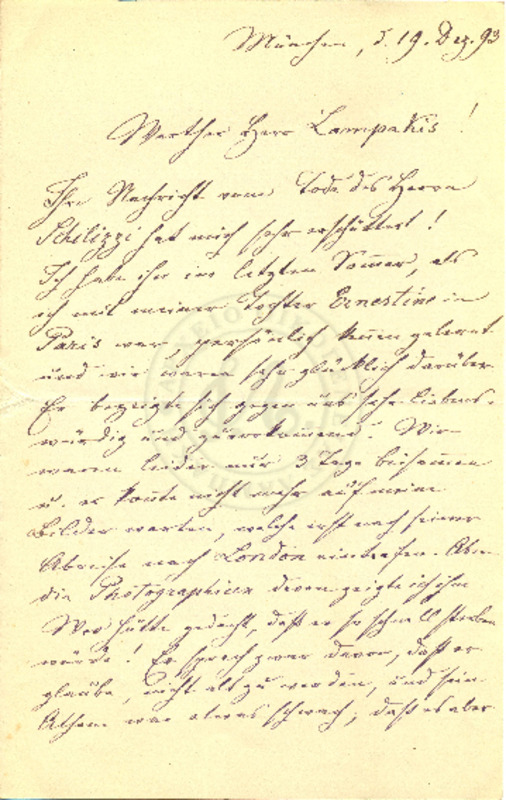 München, d. 19. Dez. 93
Werther Herr Lampakis!
Ihre Nachricht vom Tode des Herrn
Schilizzi hat mich sehr erschüttert!
Ich habe ihn im letzten Sommer, als
ich mit meiner Tochter Ernestine in
Paris war, persönlich kennen gelernt
und wir waren sehr glücklich darüber.
Er bezeigte sich gegen uns sehr liebens-
würdig und zuvorkommend. Wir
waren leider nur 3 Tage beisammen
u. er konnte nicht mehr auf meine
Bilder warten, welche erst nach seiner
Abreise nach London eintrafen. Aber
die Photographieen davon zeigte ich ihm
Wer hätte gedacht, daß er so schnell sterben
würde! Er sprach zwar davon, daß er
glaube, nicht alt zu werden, und sein
Athem war etwas schwach; daß es aber